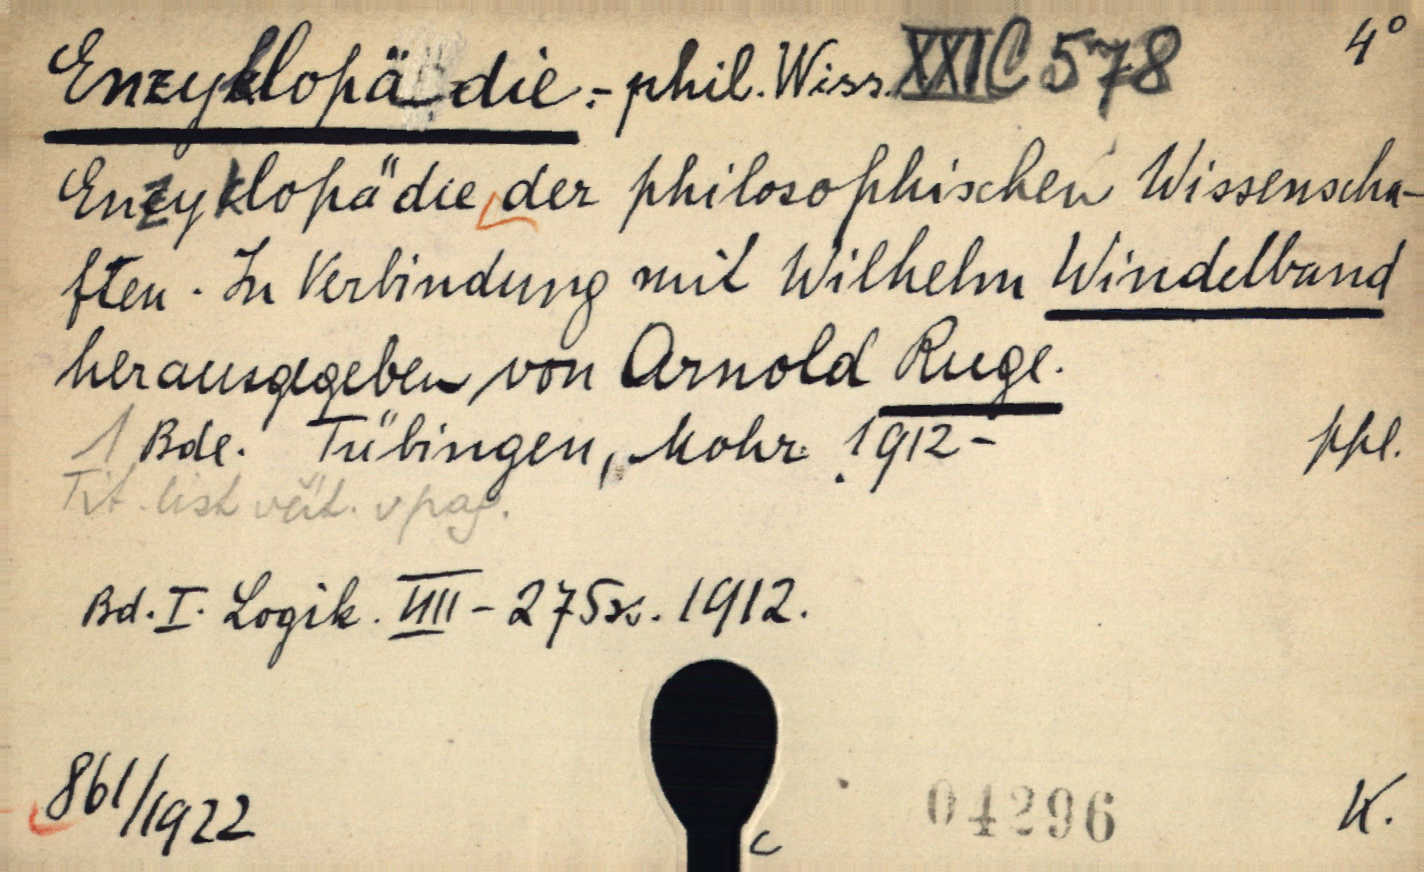 Enzyklopädie.- phil. Wiss. XXIC 578 4°
Enzyklopädie der philosophischen Wissenscha-
ften. In Verbindung mit Wilhelm Windelband
herausgegeben von Arnold Ruge.
1 Bde. Tübingen, Mohr. 1912- ppl.
Tit. list
Bd. I. Logik. VIII - 275 ss. 1912.
861/1922 04296 K.
c